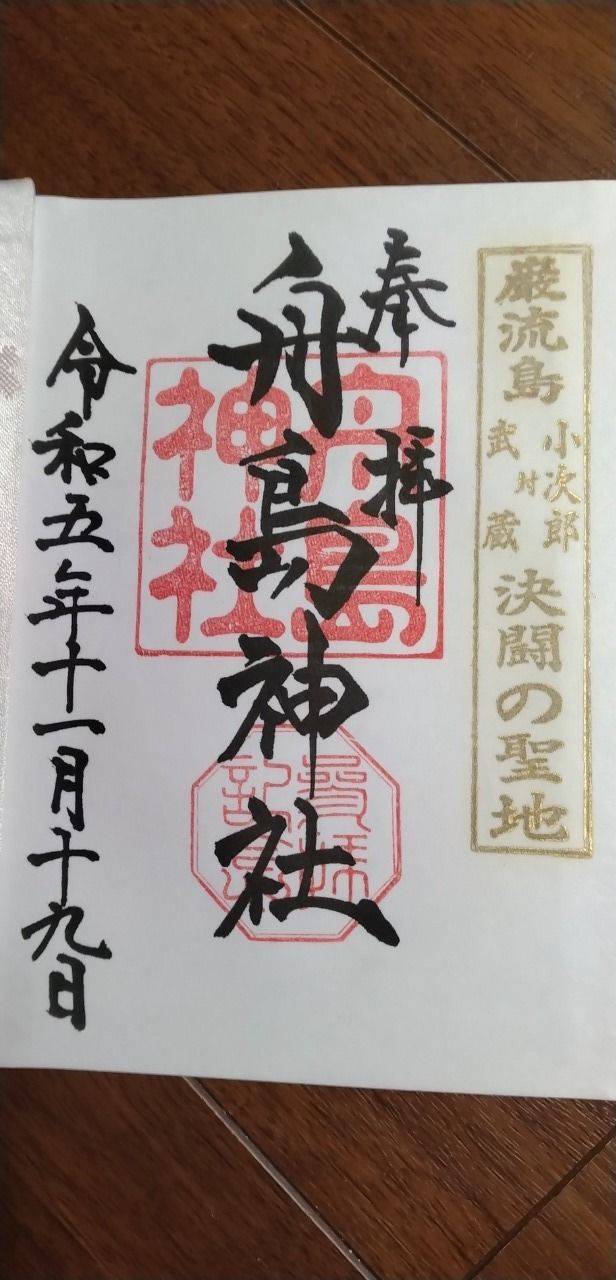 巌流島
小次郎
対
武蔵
決闘の聖地
奉拝
舟島神社
舟島
神社
参拝
記念
令和五年十一月十九日